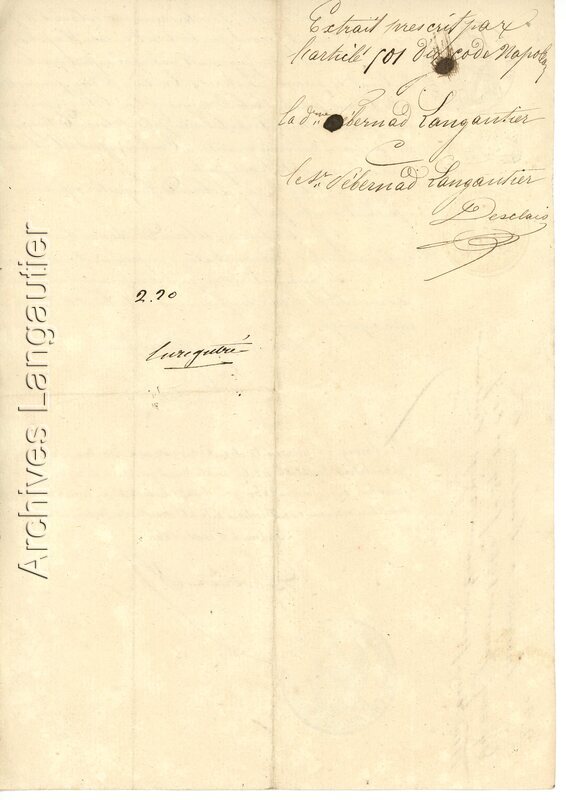 Extrait prescrit par
l'article 501 du code Napoléon
la dme Débernad Langautier
C
le Sr Débernad Langautier
Desclais
2.20
Enregistré
Archives Langautier